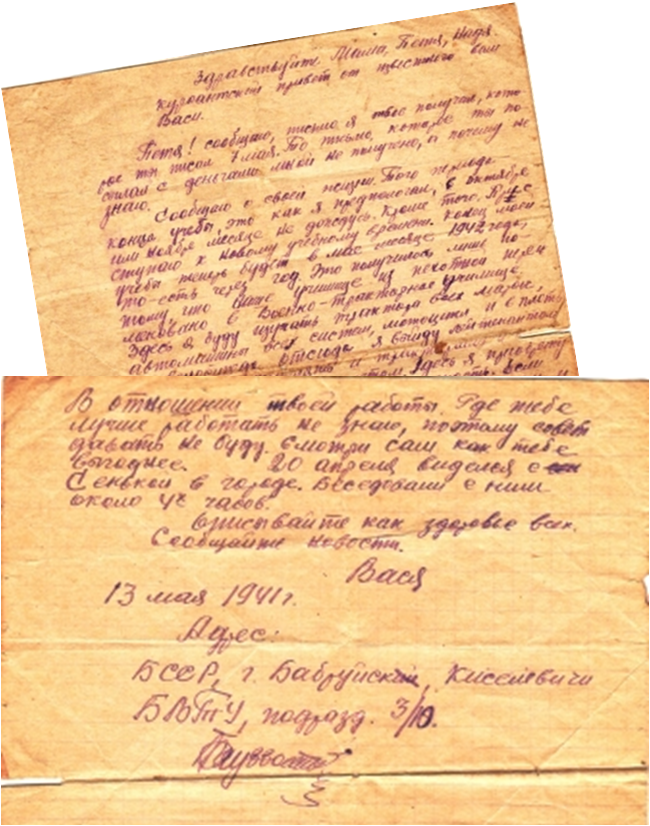 Здравствуйте Мама, Петя, Надя.
курсантский привет от известного вам
Васи.
Петя! сообщаю, письмо я твое получил, кото
рое ты писал 7 мая. То письмо, которое ты по
слал с деньгами мной не получено, а почему не
знаю.
Сообщаю о своей жизни. Того периода
конца учебы, это как я предполагал, в октябре
или ноябре месяце не дождусь. Кроме того, при
ступаю к новому учебному времени. конец моей
учебы теперь будет в мае месяце 1942 года,
то-есть через год. Это получилось лишь по
тому, что наше училище из пехотной переи
меновано в Военно-тракторное училище.
Здесь я буду изучать трактора всех марок,
автомашины всех систем, мотоцикл и
отсюда я выйду лейтенантом
и
Здесь я
В отношении твоей работы. Где тебе
лучше работать не знаю, поэтому совет
давать не буду. смотри сам как тебе
выгоднее. 20 апреля виделся с
Сенькой в городе. Беседовали с ним
около 4х часов.
Описывайте как здоровье всех.
Сообщайте новости.
Вася
13 мая 1941 г.
Адрес:
БССР, г. Бабруйск, Киселевичи
БВТУ, подразд. 3/10.